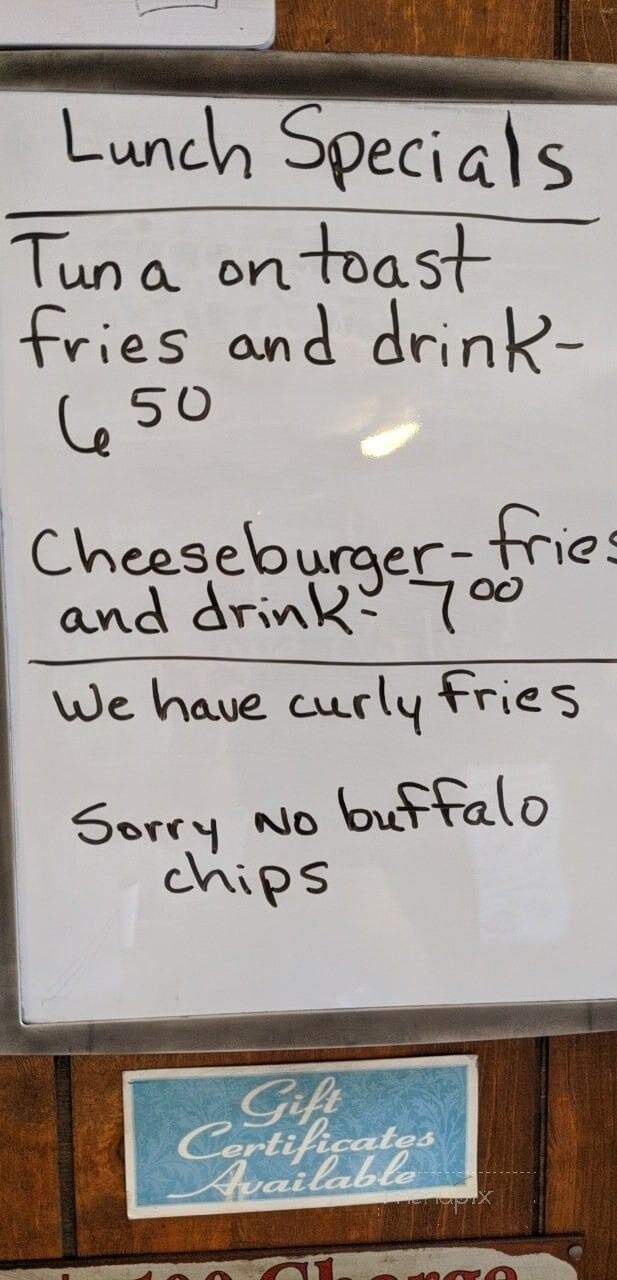 Lunch Specials
Tuna on toast
fries and drink-
6 50
Cheeseburger- fries
and drink- 7 00
We have curly fries
Sorry No buffalo
chips
Gift
Certificates
Available
menupix
Charge